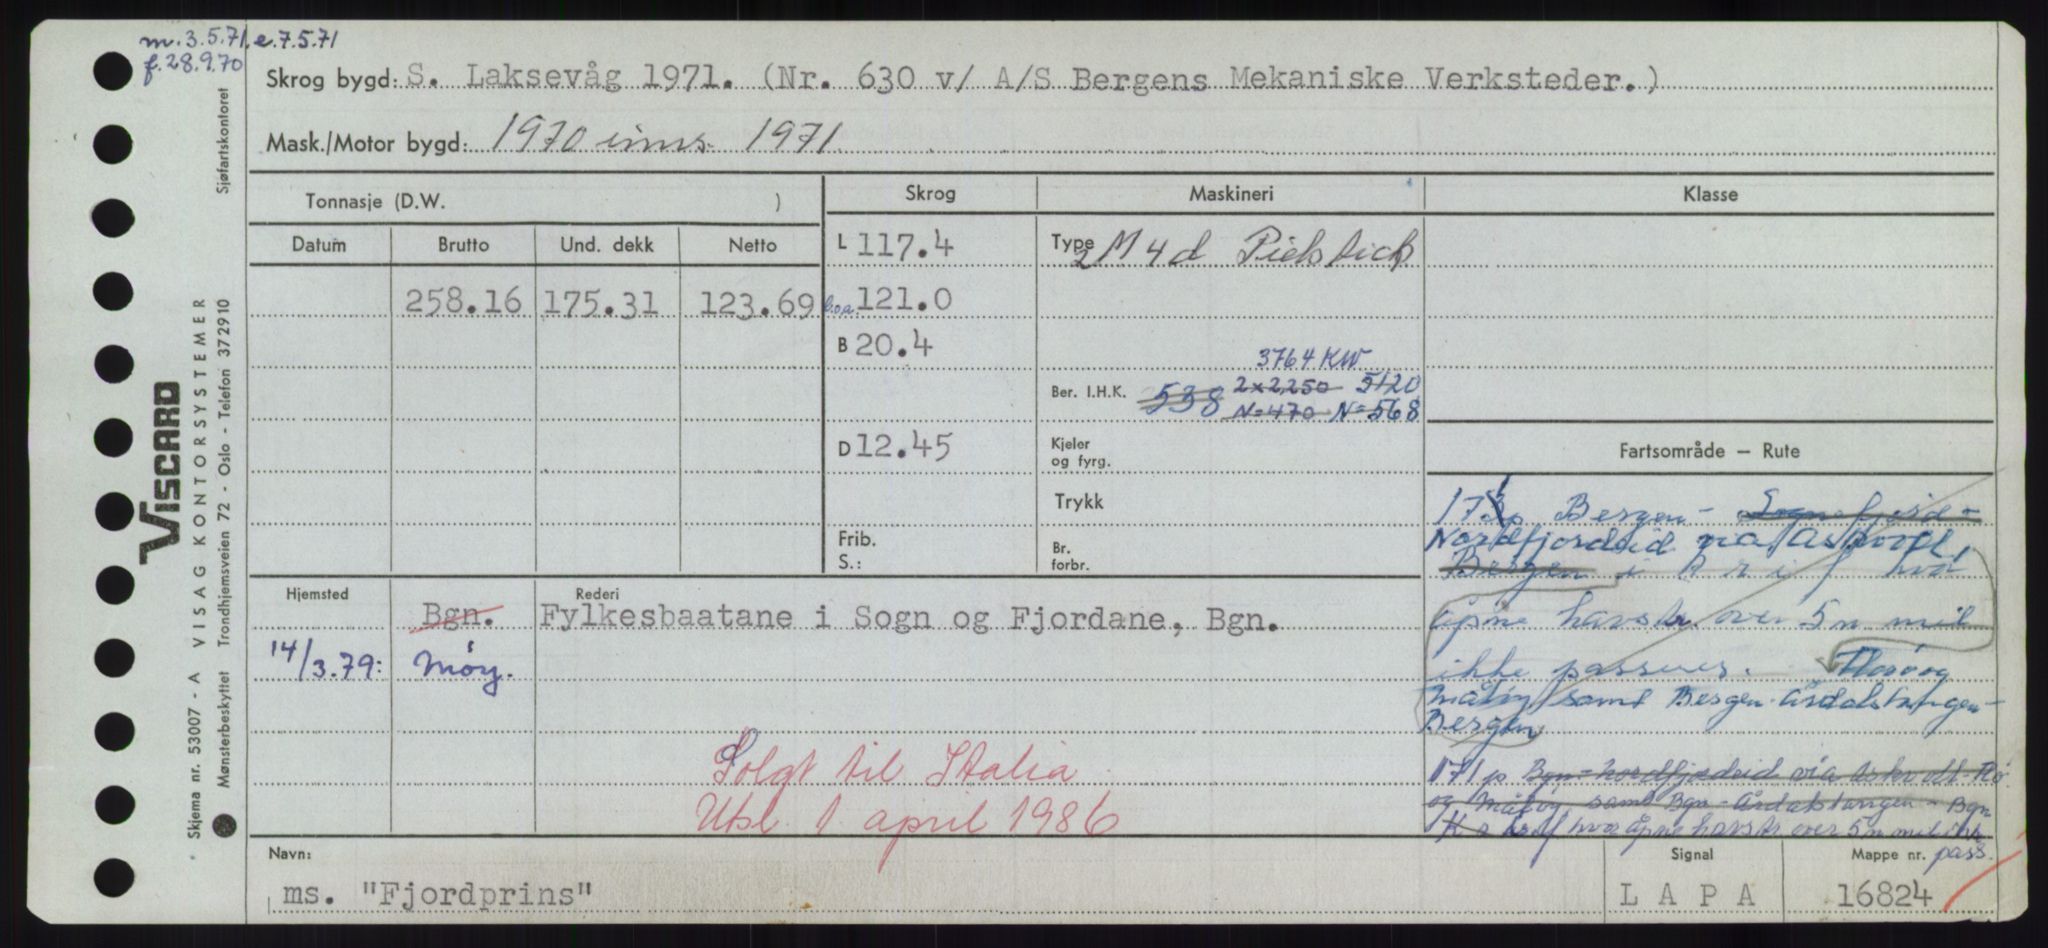 m. 3.5.71, e.7.5.71
f. 28.9.70
Skrog bygd: S. Laksevåg 1971. (Nr. 630 v/ A/S Bergens Mekaniske Verksteder.)
Mask./Motor bygd: 1970 inns. 1971
Tonnasje (D.W. )
Skrog
Maskineri
Klasse
Datum Brutto Und. dekk Netto
L 117.4
Type 2 M 4 d Pielstick
258.16 175.31 123.69
l.o.a. 121.0
B 20.4
3764 KW
Ber. I.H.K. 538 2x2250 5120
N=470 N=568
D 12.45
Kjeler
og fyrg.
Trykk
Frib.
S.:
Br.
forbr.
Fartsområde — Rute
171p Bergen - Sognefjord -
Nordfjordeid via Askvoll,
Bergen i K r i f hvor
åpne havstr. over 5 n mil
ikke passeres. Florø og
Måløy samt Bergen - Årdalstangen -
Bergen
171 p Bgn - Nordfjordeid via Askvoll - Flø.
og Måløy samt Bgn - Årdalstangen - Bgn
K r i f hvor åpne havstr over 5 n mil ikke
pass.
Hjemsted
Rederi
Bgn. Fylkesbaatane i Sogn og Fjordane, Bgn.
14/3.79: Måøy.
Solgt til Italia
Utsl. 1 april 1986
Navn:
ms. "Fjordprins"
Signal
L A P A
Mappe nr.
16824
Sjøfartskontoret
VISCARD
VISAG KONTORSYSTEMER
Trondhjemsveien 72 - Oslo - Telefon 372910
Skjema nr. 53007 - A
Mønsterbeskyttet